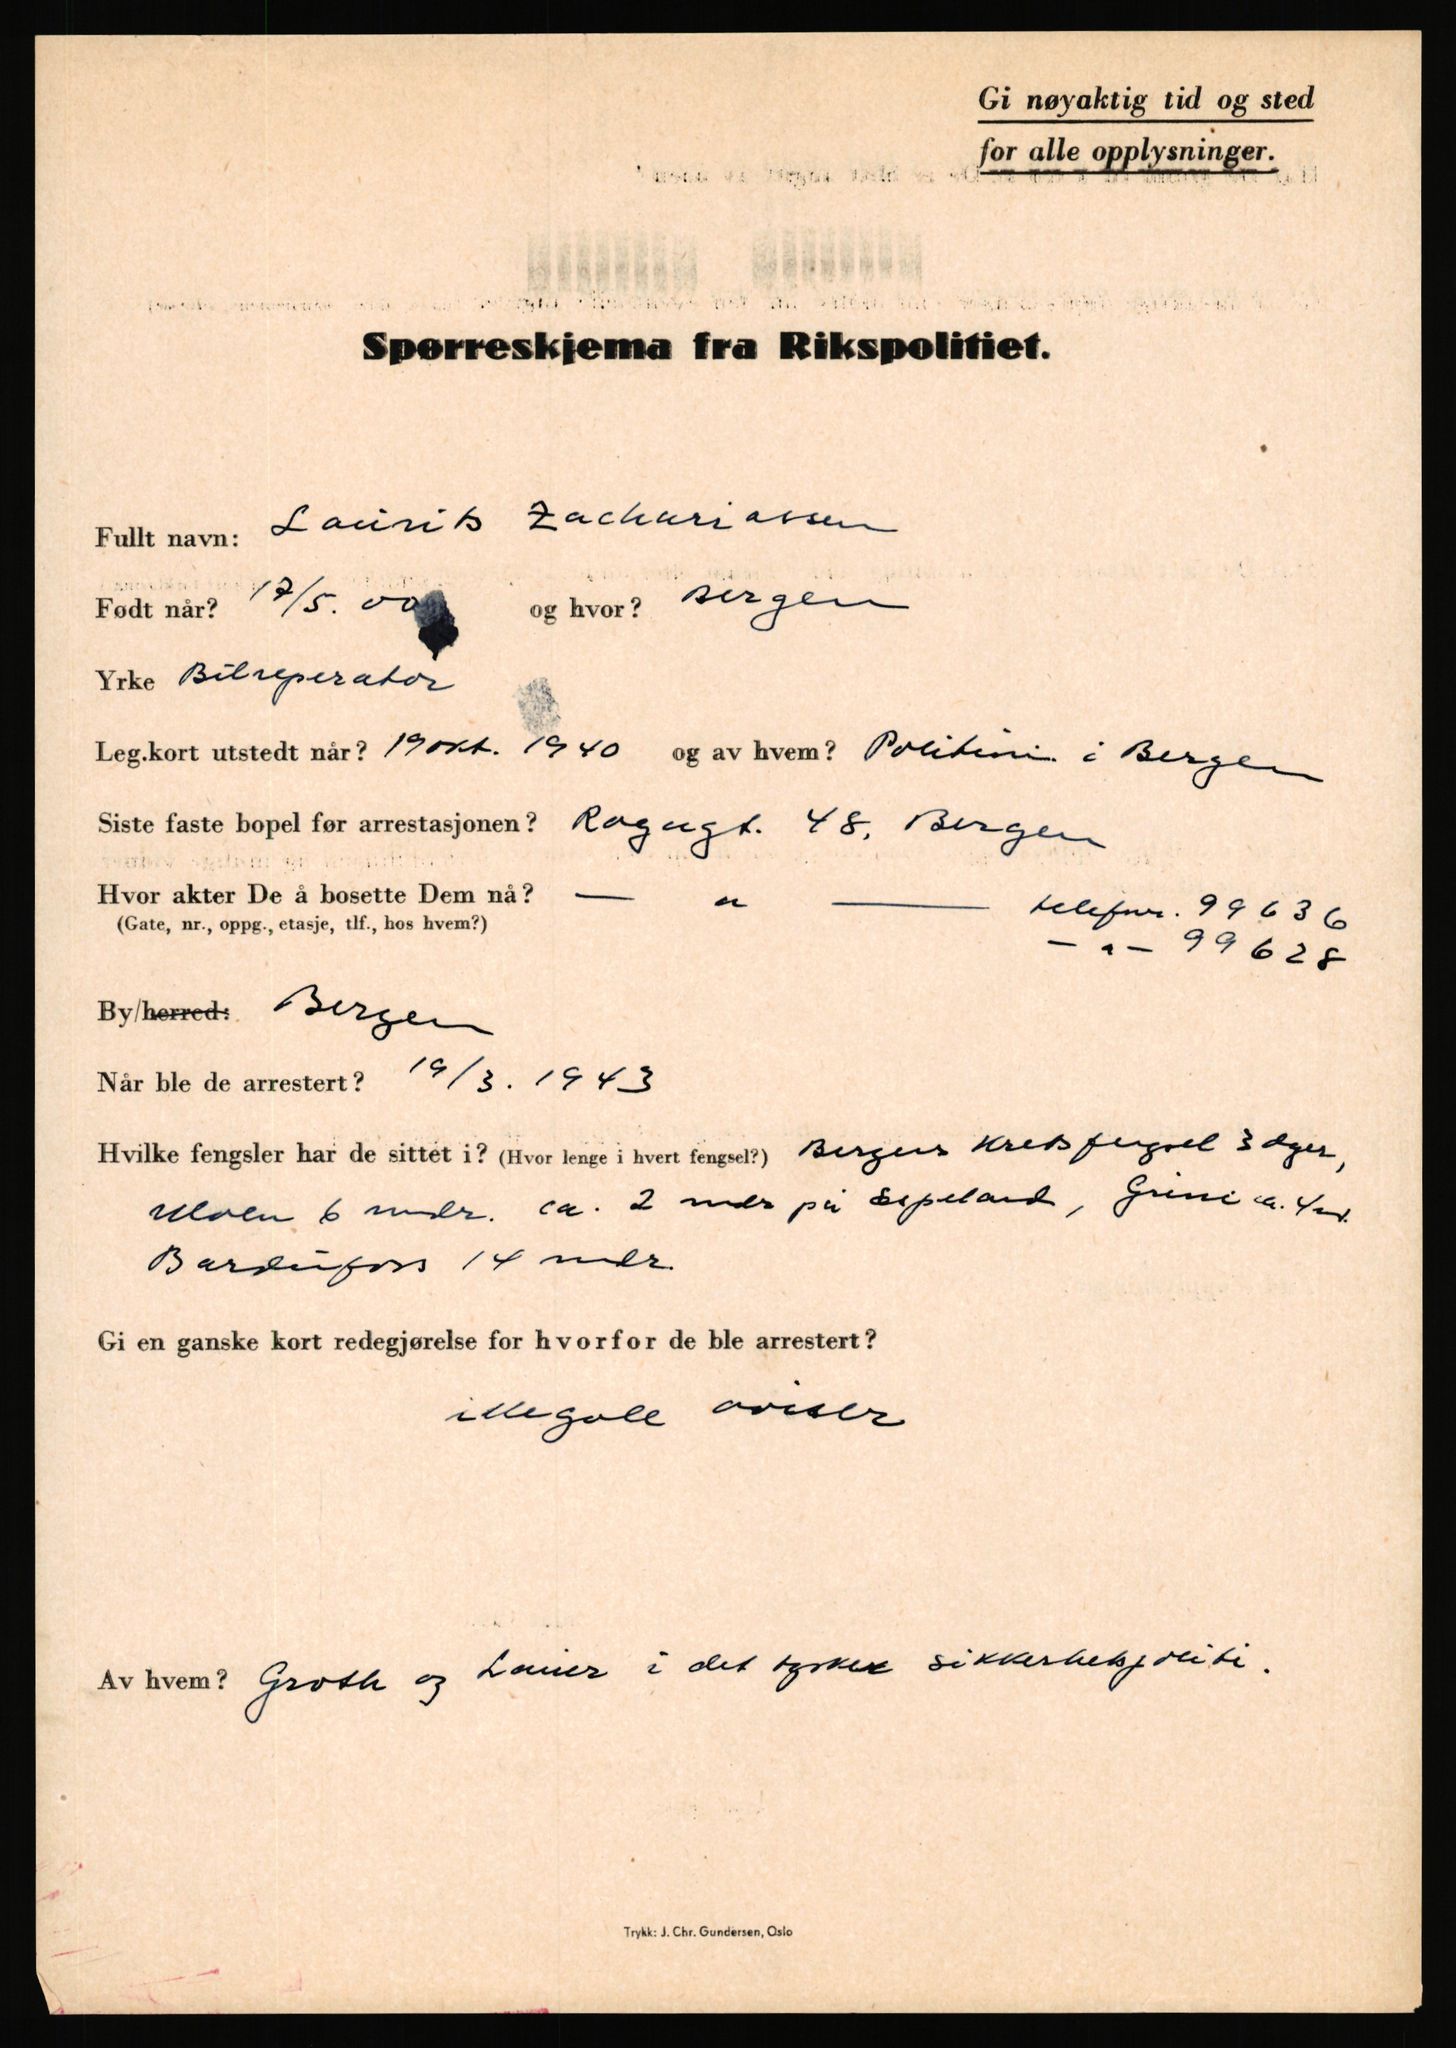 Gi nøyaktig tid og sted
for alle opplysninger.
Spørreskjema fra Rikspolitiet.
Fullt navn: Laurits Zachariassen
Født når? 17/5. 00 og hvor? Bergen
Yrke Bilreperatør
Leg.kort utstedt når? 19 okt. 1940 og av hvem? Politiet i Bergen
Siste faste bopel før arrestasjonen? 48, Bergen
Hvor akter De å bosette Dem nå? — " — telefnr. 99636
(Gate, nr., oppg., etasje, tlf., hos hvem?) — " — 99628
By/herred: Bergen
Når ble de arrestert? 19/3. 1943
Hvilke fengsler har de sittet i? (Hvor lenge i hvert fengsel?) Bergens Kretsfengsel 3 dger,
Ulven 6 mdr. ca. 2 mdr på Espeland, Grini ca. 4 md.
Bardufoss 14 mdr.
Gi en ganske kort redegjørelse for hvorfor de ble arrestert?
illegale aviser
Av hvem? Groth og i det tyske sikkerhetspoliti.
Trykk: J. Chr. Gundersen, Oslo